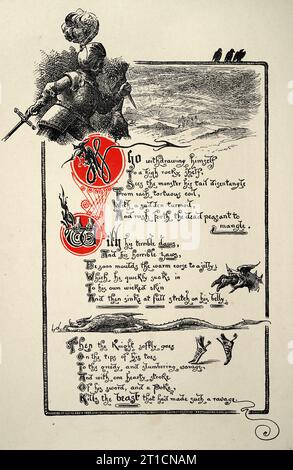 Who withdrawing himself
To a high rocky shelf,
Sees the monster his tail disentangle
From each tortuous coil,
With a sudden turmoil,
And rush forth the dead peasant to
mangle.
With his terrible claws,
And his horrible jaws,
He soon moulds the warm corse to a jelly;
Which he quickly sucks in
To his own wicked skin
And then sinks at full stretch on his belly.
Then the Knight softly goes
On the tips of his toes
To the greedy and slumbering savage,
And with one hearty stroke
Of his sword, and a Poke,
Kills the beast that had made such a ravage.
alamy
Image ID: 2T1CNAM
www.alamy.com